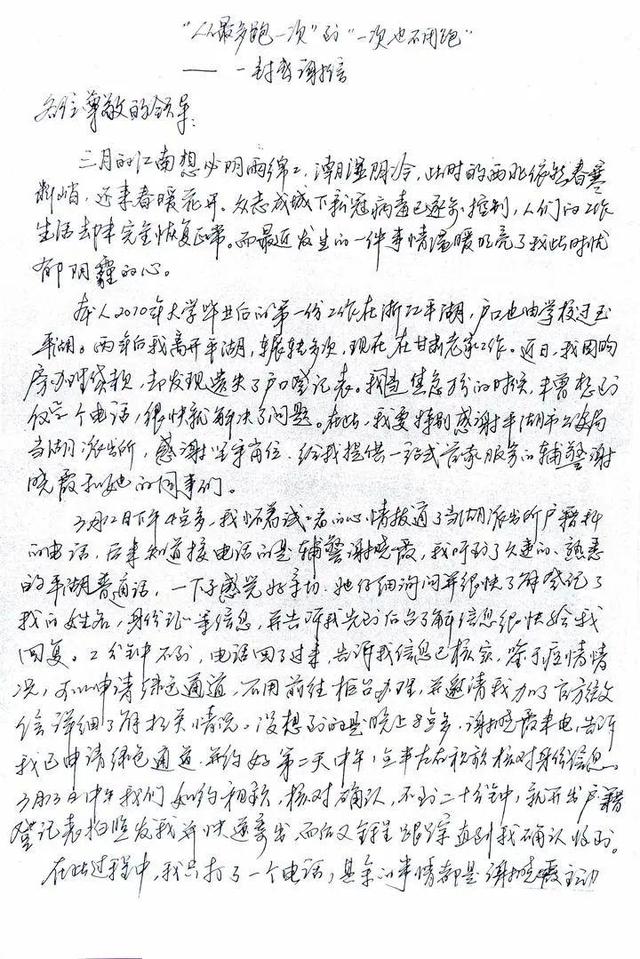 “从最多跑一次”到“一次也不用跑”
——一封感谢信
各位尊敬的领导：
三月的江南想必阴雨绵绵，潮湿阴冷，此时的西北依然春寒
料峭，还未春暖花开。众志成城下新冠病毒已逐步控制，人们的工作
生活却未完全恢复正常。而最近发生的一件事情温暖明亮了我此时忧
郁阴霾的心。
本人2010年大学毕业后的第一份工作在浙江平湖，户口也由学校迁至
平湖。两年后我离开平湖，辗转多次，现在在甘肃老家工作。近日，我因购
房办理贷款，却发现遗失了户口登记表。我当焦急万分的时候，未曾想到
仅一个电话，很快就解决了问题。在此，我要特别感谢平湖市公安局
当湖派出所，感谢坐守岗位、给我提供一站式管家服务的辅警谢
晓霞和她的同事们。
3月12日下午4点多，我怀着试一试的心情拨通了当湖派出所户籍科
的电话，后来知道接电话的是辅警谢晓霞，我听到了久违的、熟悉
的平湖普通话，一下子感觉好亲切。她仔细询问并很快了解登记了
我的姓名，身份证等信息，并告诉我先到后台了解信息很快给我
回复。2分钟不到，电话回了过来，告诉我信息已核实，鉴于疫情情
况，可以申请绿色通道，不用前往柜台办理，并邀请我加了官方微
信详细了解相关情况。没想到的是晚上8点多，谢晓霞来电，告诉
我已申请绿色通道，并约好第二天中午1点半左右视频核对身份信息。
3月13日中午我们如约视频，核对确认，不到二十分钟，就开出户籍
登记表拍照发我并快递寄出，而后又全程跟踪直到我确认收到。
在此过程中，我只打了一个电话，其余的事情都是谢晓霞主动